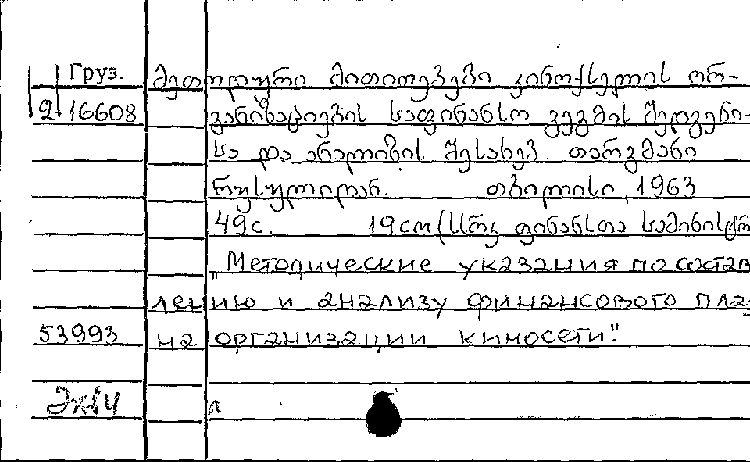 Груз. მეთოდური მითითებები კინოქსელის ორ-
2 16608 განიზაციების საფინანსო გეგმის შედგენი-
სა და ანალიზის შესახებ. თარგმანი
რუსულიდან. თბილისი, 1963
49с. 19см (სსრკ ფინანსთა სამინისტრ
„Методические указания по состав
лению и анализу финансового пла
53993 на организации киносети."